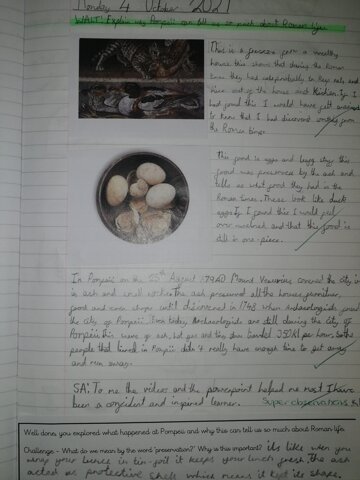 Monday 4 October 2021
WALT: Explain why Pompeii can tell us so much about Roman life.
This is a from a wealthy
house this shows that during the Roman
times they had cats probably to keep rats and
mice out of the house and Kitchen. If I
had found this I would have felt amazed
to know that I had discovered from
the Roman times.
This food is eggs and this
food was preserved by the ash and
tells us what food they had in the
Roman times. These look like duck
eggs. If I found this I would feel
over whelmed and that this food is
still in one piece.
In Pompeii on the 25th August 79AD Mount Vesuvius covered the city
in ash and small rocks. The ash preserved all the houses, furniture,
food and even shops until discovered in 1748 when Archaeologists found
the city of Pompeii. Even today, Archaeologists are still the City of
Pompeii. this wave of ash, hot gas and travelled 350KM per hour. So the
people that lived in Pompeii didn't really have enough time to get away
and run away.
SA: To me the videos and the powerpoint helped me most I have
been a confident and inspired learner. Super observations
Well done, you explored what happened at Pompeii and why this can tell us so much about Roman life.
Challenge - What do we mean by the word 'preservation'? Why is this important? its like when you
wrap your lunch in tin-foil it keeps your lunch fresh. The ash
acted as protective shell which means it kept its shape.